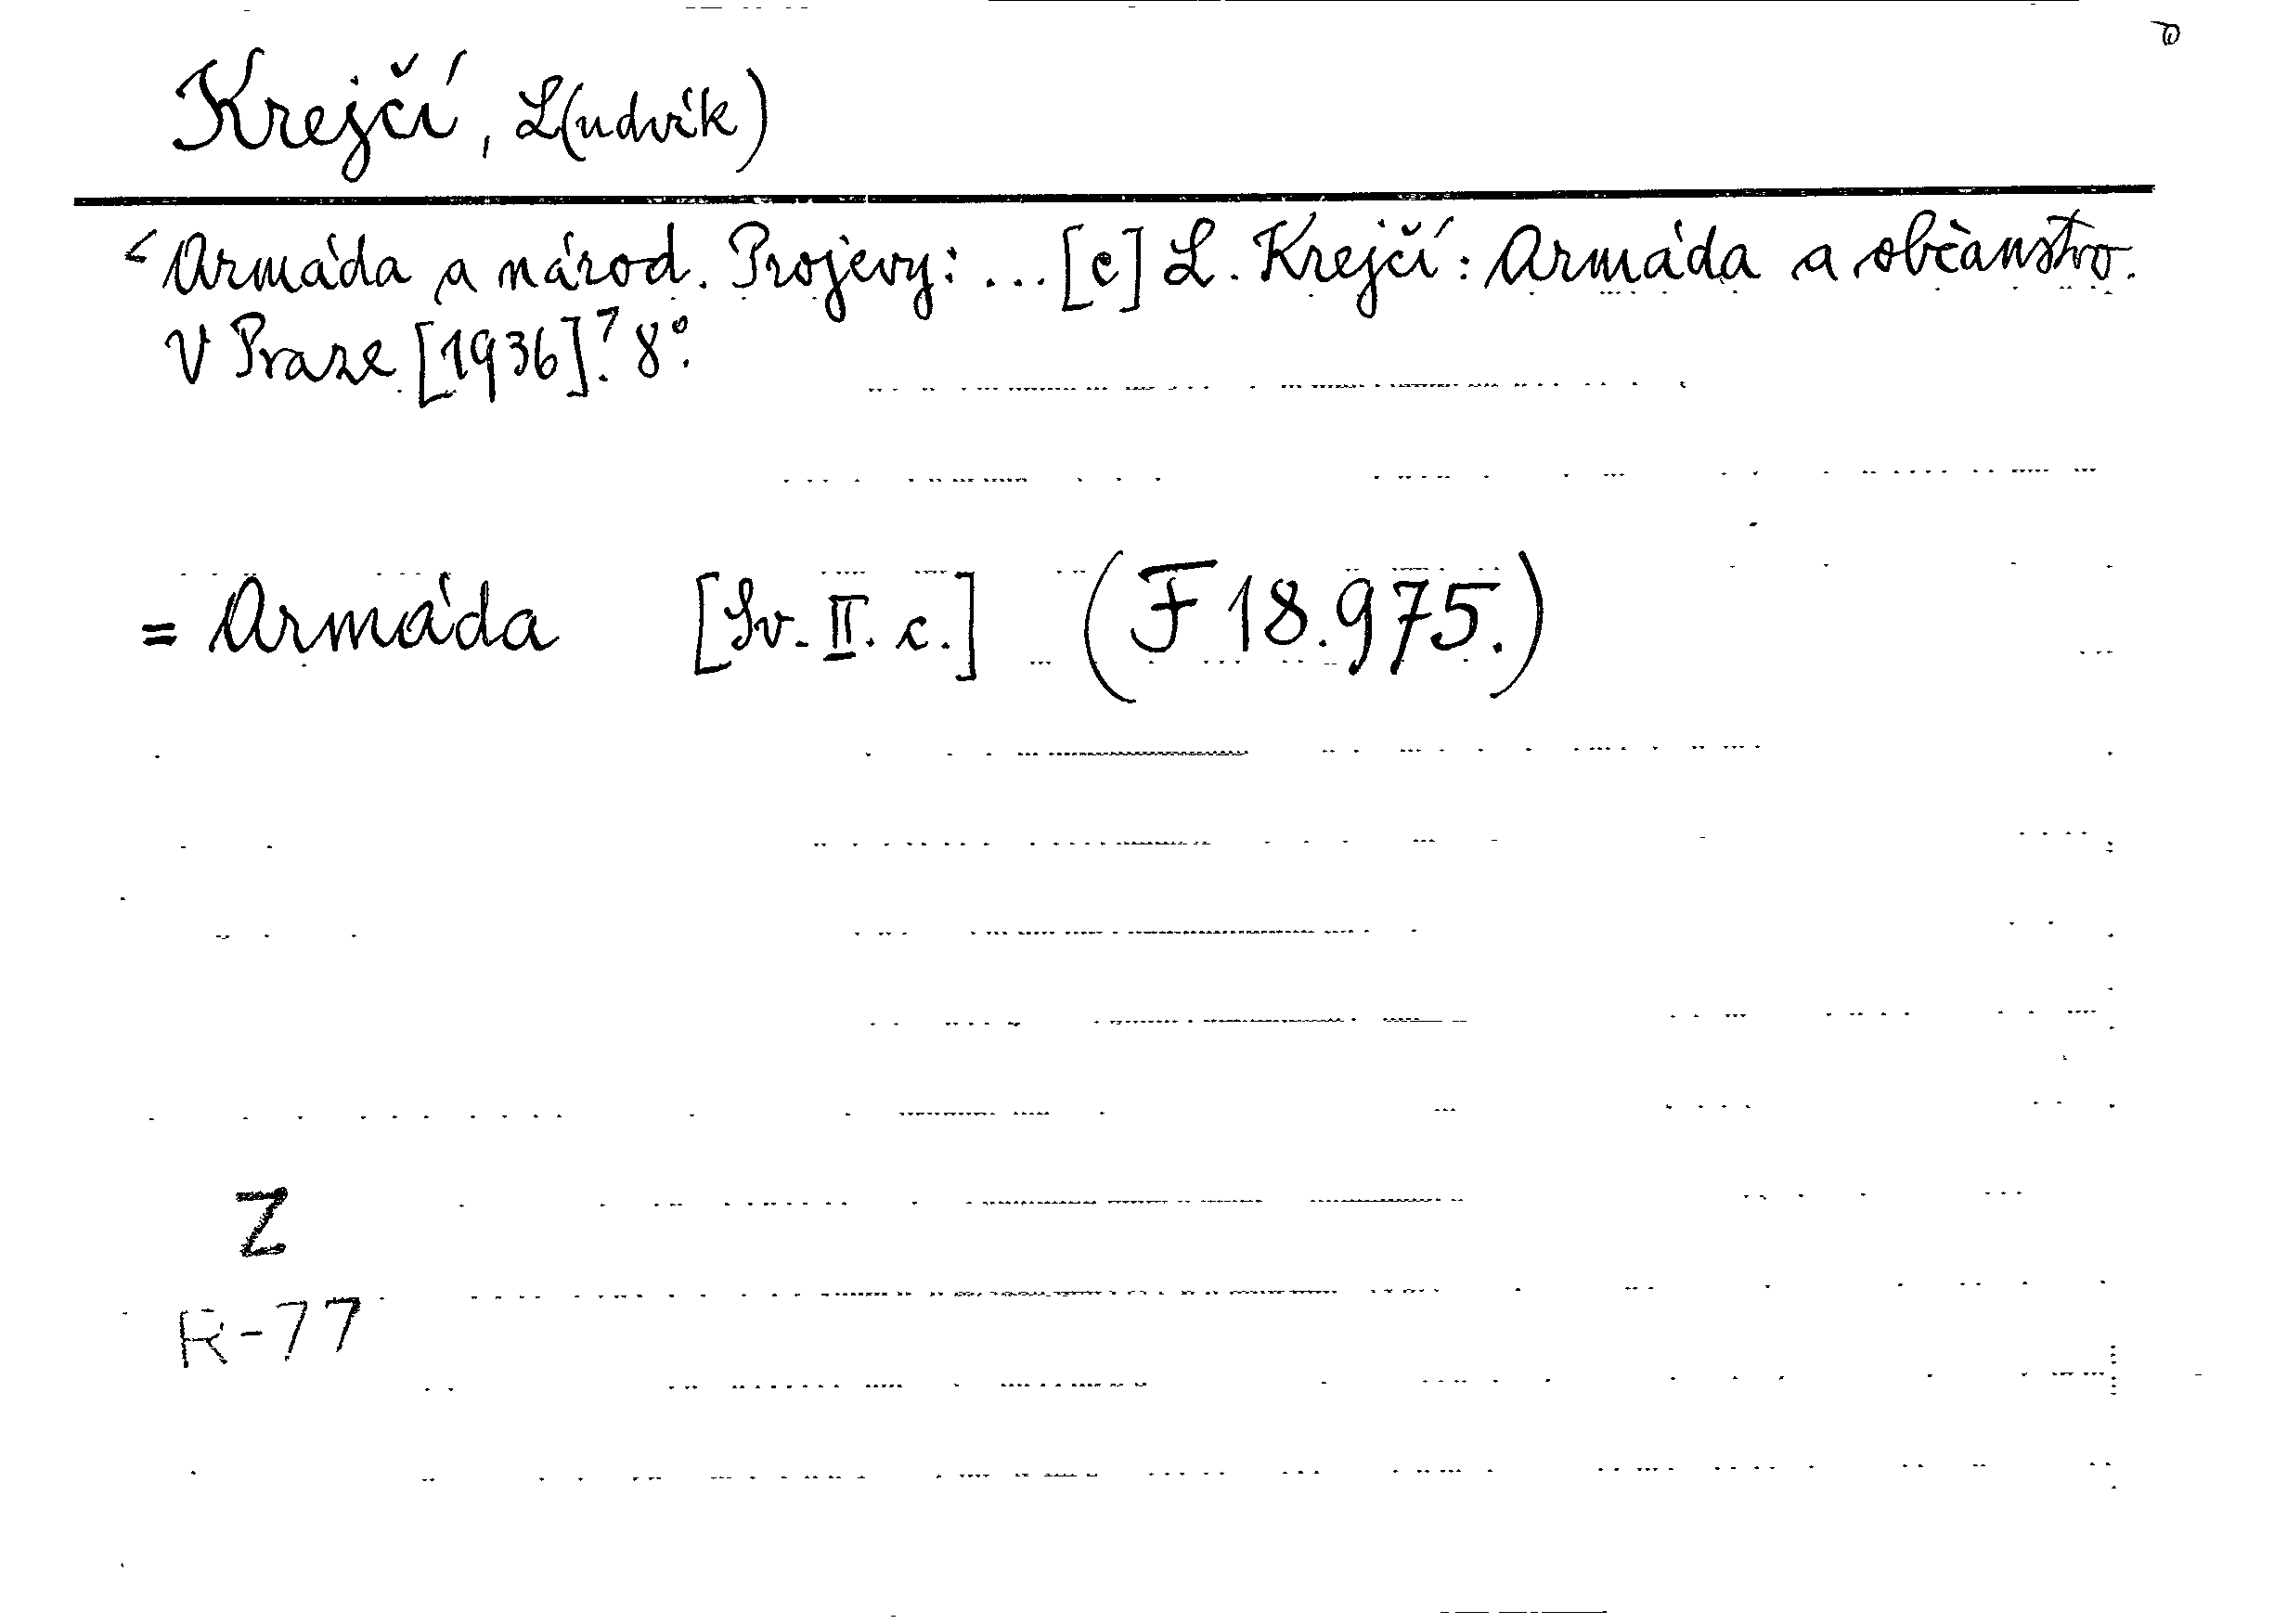 Krejčí, L(udvík)
< Armáda a národ. Projevy: ... [c] L. Krejčí: Armáda a občanstvo.
V Praze [1936]? 8°.
= Armáda [Sv. II. c.] (F 18.975.)
Z
R-77